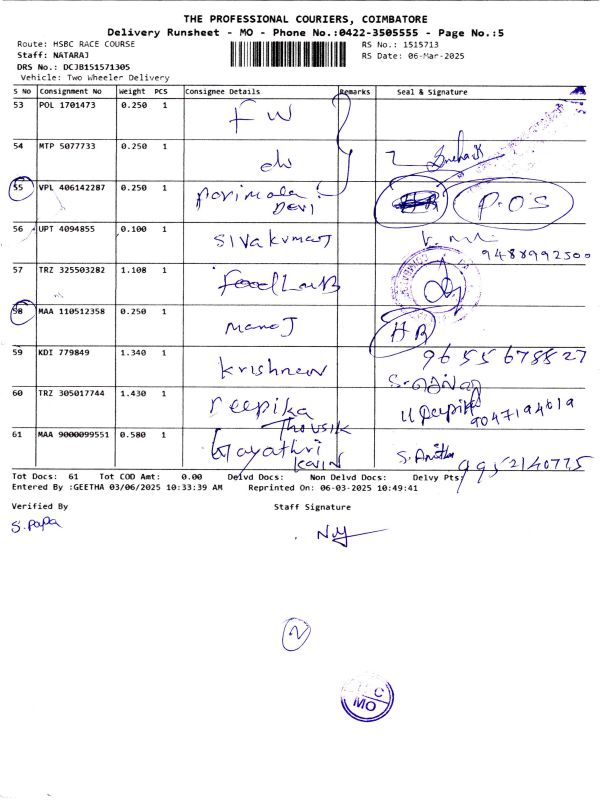 THE PROFESSIONAL COURIERS, COIMBATORE
Delivery Runsheet - MO - Phone No.:0422-3505555 - Page No.:5
Route: HSBC RACE COURSE
RS No.: 1515713
Staff: NATARAJ
RS Date: 06-Mar-2025
DRS No.: DCJB151571305
Vehicle: Two Wheeler Delivery
S No Consignment No Weight PCS Consignee Details Remarks Seal & Signature
53 POL 1701473 0.250 1 FW
54 MTP 5077733 0.250 1 dw
55 VPL 406142287 0.250 1 Parimala Devi HB P.O.S
56 UPT 4094855 0.100 1 Sivakumar 9488992500
57 TRZ 325503282 1.108 1 Food Lab
58 MAA 110512358 0.250 1 Manoj HB
59 KDI 779849 1.340 1 Krishnan 9655678827
60 TRZ 305017744 1.430 1 reepika Thousik 9047194619
61 MAA 9000099551 0.580 1 Gayathri Kavin S. Anitha 9952140775
Tot Docs: 61 Tot COD Amt: 0.00 Delvd Docs: Non Delvd Docs: Delvy Pts:
Entered By :GEETHA 03/06/2025 10:33:39 AM Reprinted On: 06-03-2025 10:49:41
Verified By Staff Signature
S. Papa
2
MO